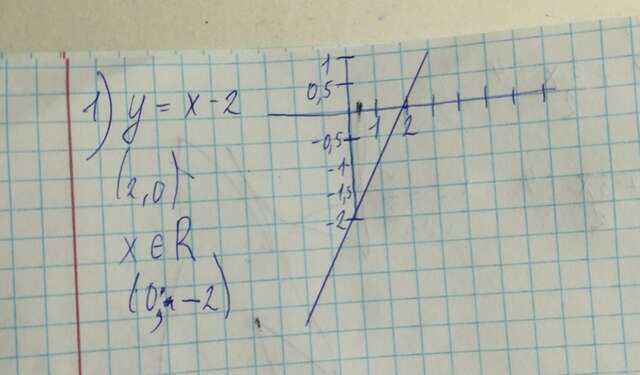 1) y = x - 2
(2,0)
x ∈ R
(0; -2)
1
0,5
1 2
-0,5
-1
-1,5
-2